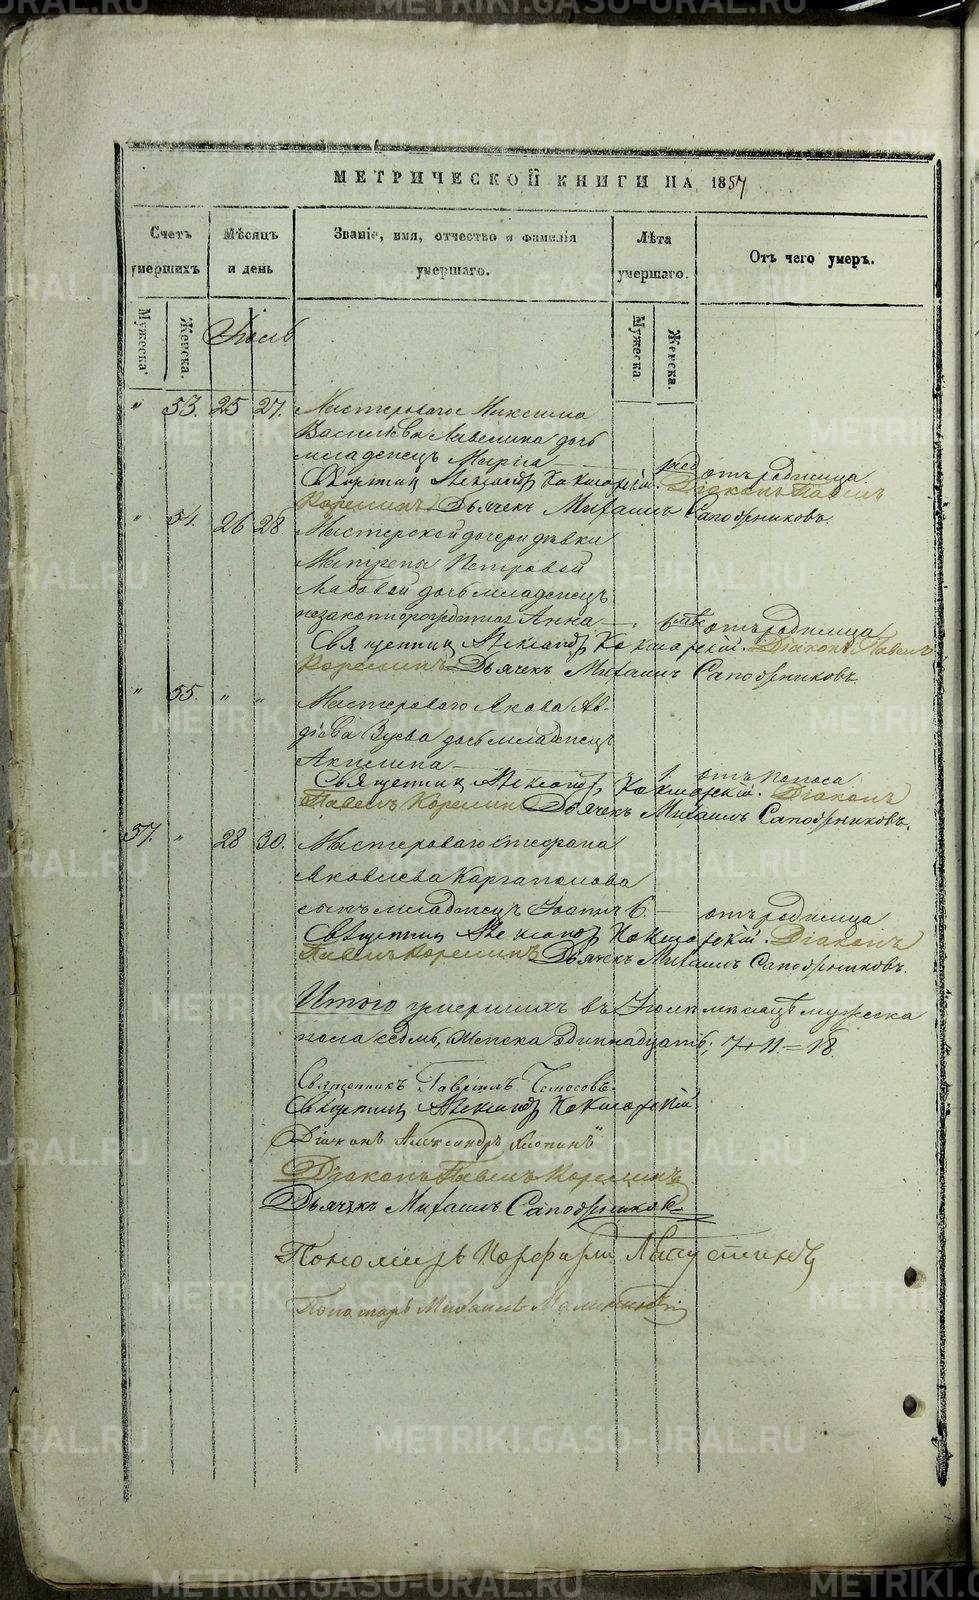 МЕТРИЧЕСКОЙ КНИГИ НА 1857
Счетъ умершихъ
Мѣсяцъ и день
Званіе, имя, отчество и фамилія умершаго.
Лѣта умершаго.
Отъ чего умеръ.
Мужеска.
Женска.
Іюль
Мужеска.
Женска.
" 53. 25 27. Мастероваго Максима
Васильева дочь
младенецъ Марія отъ родимца
Священникъ Александръ Кокшарскій. Діаконъ Павелъ
Корелинъ Дьячекъ Михаилъ Сапожниковъ.
" 54. 26 28. Мастерской дочери дѣвки
Матрены Петровой
дочь младенецъ
незаконнорожденная Анна отъ родимца
Священникъ Александръ Кокшарскій. Діаконъ Павелъ
Корелинъ Дьячекъ Михаилъ Сапожниковъ.
" 55. " " Мастероваго Якова Ав-
дѣева Зуева дочь младенецъ
Акилина 1. отъ поноса
Священникъ Александръ Кокшарскій. Діаконъ
Павелъ Корелинъ Дьячекъ Михаилъ Сапожниковъ.
57. " 28 30. Мастероваго Стефана
Яковлева Каргаполова
сынъ младенецъ Іоаннъ 6. отъ родимца
Священникъ Александръ Кокшарскій. Діаконъ
Павелъ Корелинъ Дьячекъ Михаилъ Сапожниковъ.
Итого умершихъ въ Іюлѣ мѣсяцѣ мужеска
пола семь, женска одиннадцать; 7+11.=18.
Священникъ Гавріилъ
Священникъ Александръ Кокшарскій
Діаконъ Александръ
Діаконъ Павелъ Корелинъ
Дьячекъ Михаилъ Сапожниковъ
Пономарь Порфирій
Пономарь Михаилъ
METRIKI.GASO-URAL.RU